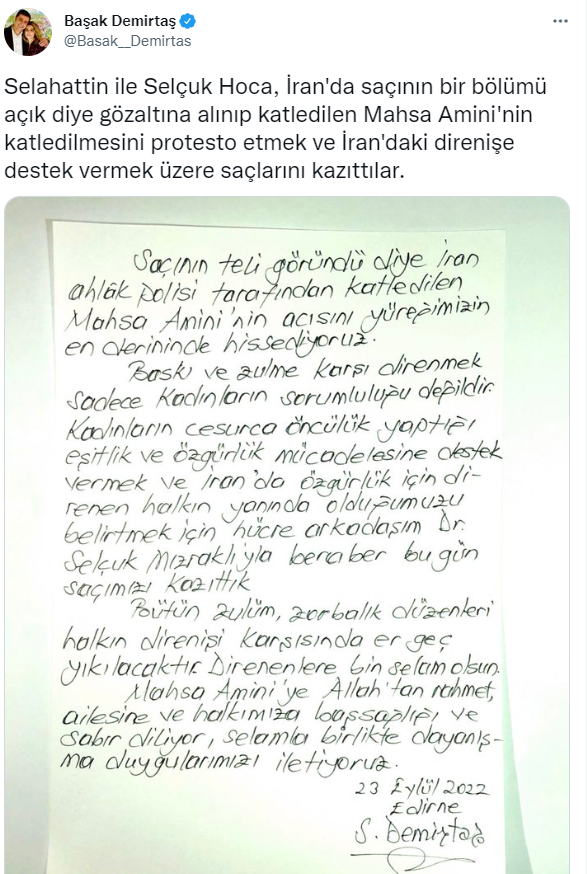 Başak Demirtaş
@Basak__Demirtas
Selahattin ile Selçuk Hoca, İran'da saçının bir bölümü
açık diye gözaltına alınıp katledilen Mahsa Amini'nin
katledilmesini protesto etmek ve İran'daki direnişe
destek vermek üzere saçlarını kazıttılar.
Saçının teli göründü diye İran
ahlâk polisi tarafından katledilen
Mahsa Amini'nin acısını yüreğimizin
en derininde hissediyoruz.
Baskı ve zulme karşı direnmek
sadece kadınların sorumluluğu değildir.
Kadınların cesurca öncülük yaptığı
eşitlik ve özgürlük mücadelesine destek
vermek ve İran'da özgürlük için di-
renen halkın yanında olduğumuzu
belirtmek için hücre arkadaşım Dr.
Selçuk Mızraklı'yla beraber bugün
saçımızı kazıttık
Bütün zulüm, zorbalık düzenleri
halkın direnişi karşısında er geç
yıkılacaktır. Direnenlere bin selam olsun.
Mahsa Amini'ye Allah'tan rahmet,
ailesine ve halkımıza başsağlığı ve
sabır diliyor, selamla birlikte dayanış-
ma duygularımızı iletiyoruz.
23 Eylül 2022
Edirne
S. Demirtaş